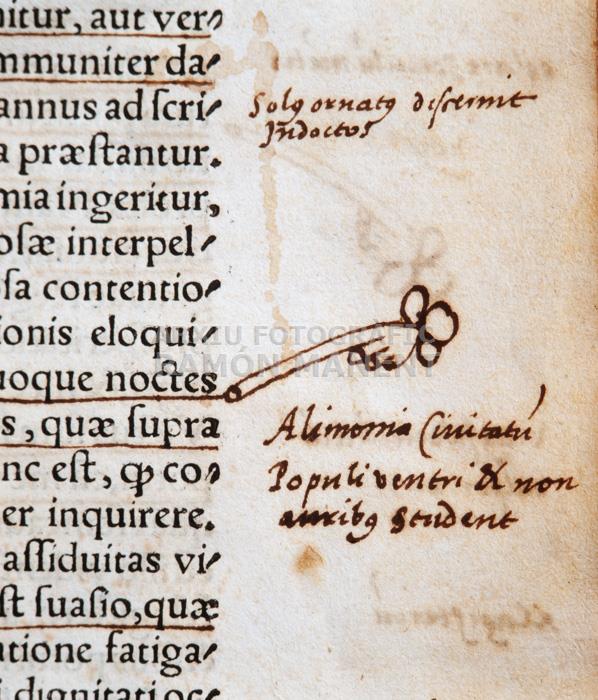 nitur, aut ver⸗
mmuniter da⸗
annus ad ſcri⸗
a præſtantur.
mia ingeritur,
oſæ interpel⸗
ſa contentio⸗
ionis eloqui⸗
uoque noctes
s, quæ ſupra
nc eſt, ꝙ co⸗
er inquirere.
aſſiduitas vi⸗
ſt ſuaſio, quæ
atione fatiga⸗
i dignitati oc⸗
Solꝰ ornatꝰ diſcernit
Indoctos
ARXIU FOTOGRÀFIC
RAMÓN MANENT
Alimonia Ciuitatū
Populi ventri & non
auribꝰ student